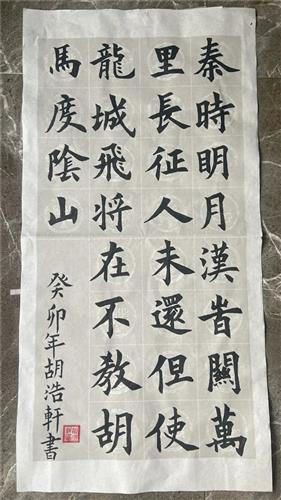 秦時明月漢旹關萬
里長征人未還但使
龍城飛將在不教胡
馬度陰山
癸卯年胡浩軒書